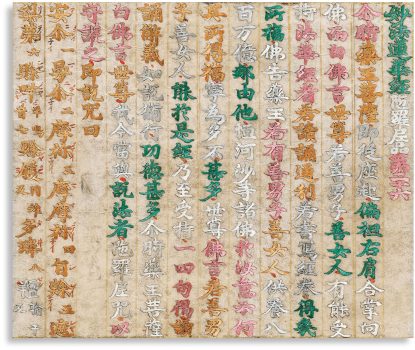 妙法蓮華經陀羅尼品第二十六
尒時藥王菩薩即從座起偏袒右肩合掌向
佛而白佛言世尊若善男子善女人有能受
持法華經者若讀誦通利若書寫經卷得幾
所福佛告藥王若有善男子善女人供養八
百万億那由他恒河沙等諸佛於汝意云何
其所得福寧為多不甚多世尊佛言若善男
子善女人能於是經乃至受持一四句偈讀
誦解義如說修行功德甚多尒時藥王菩薩
白佛言世尊我今當與說法者陀羅尼呪以
守護之即說呪曰
安尒一曼尒二摩祢三摩摩祢四旨隸五遮